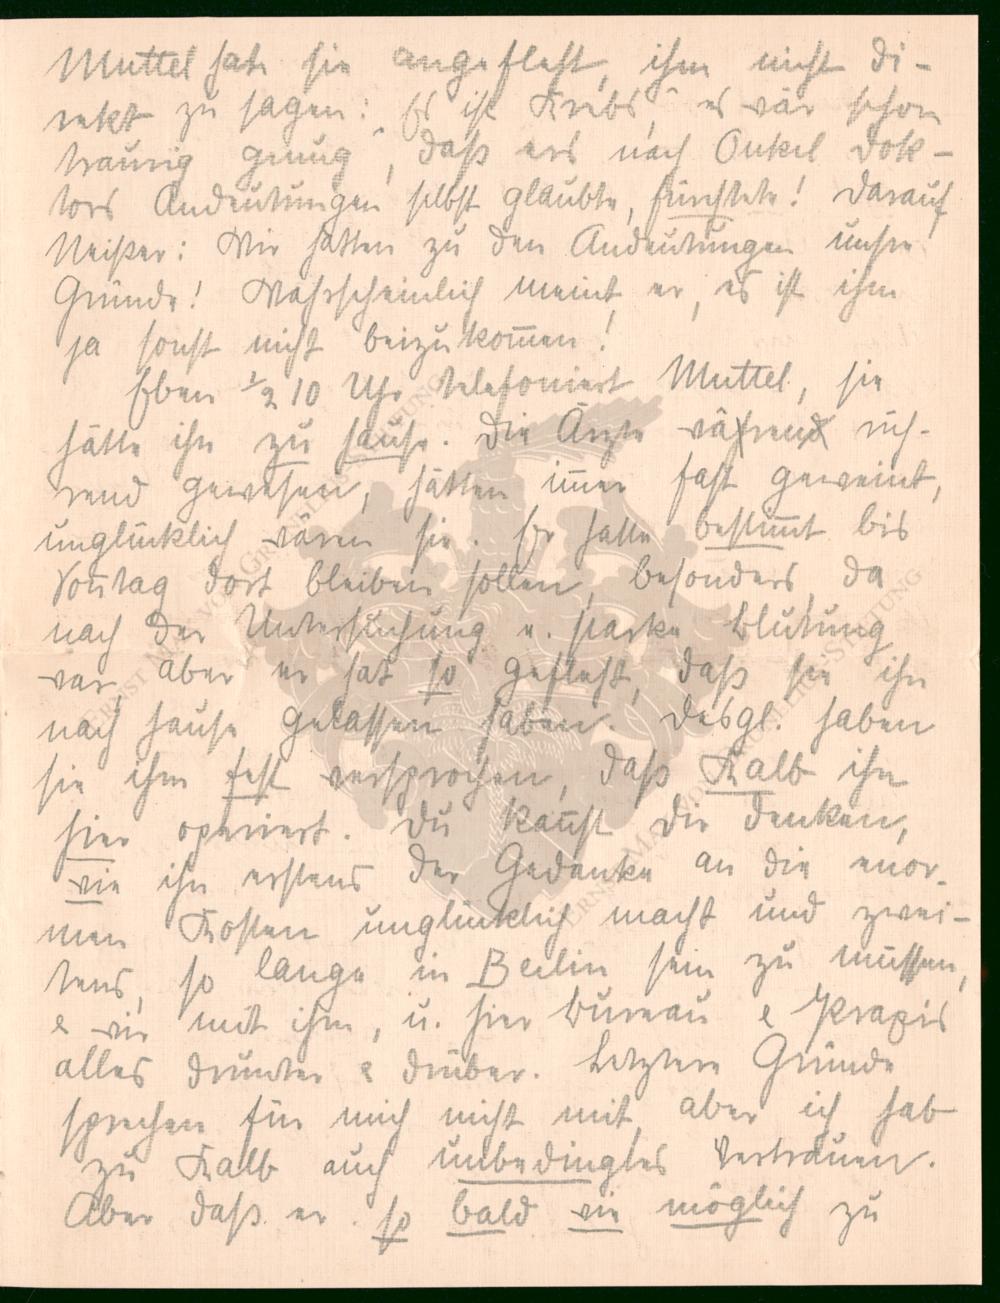 Muttel hat sie angefleht, ihm nicht di-
rekt zu sagen: „Es ist Krebs," es wär schon
traurig genug, daß ers nach Onkel Dok-
tors Andeutungen selbst glaubte, fürchtete! Darauf
Neißer: Wir hatten zu den Andeutungen unsre
Gründe! Wahrscheinlich meint er, es ist ihm
ja sonst nicht beizukom̅en!
Eben ½ 10 Uhr telefoniert Muttel, sie
hätte ihn zu Hause. Die Ärzte wären rüh-
rend gewesen, hätten im̅er fast geweint,
unglücklich waren sie. Er hatte bestim̅t bis
Son̅tag dort bleiben sollen, besonders, da
nach der Untersuchung e. starke Blutung
war, aber er hat so gefleht, daß sie ihn
nach Hause gelassen haben. Desgl. haben
sie ihm fest versprochen, daß Kalb ihn
hier operiert. Du kan̅st Dir denken,
wie ihn erstens der Gedanke an die enor-
men Kosten unglücklich macht und zwei-
tens, so lange in Berlin sein zu müssen,
& wir mit ihm, u. hier Bureau & Praxis
alles drunter & drüber. Letztere Gründe
sprechen für mich nicht mit, aber ich hab
zu Kalb auch unbedingtes Vertrauen.
Aber daß er so bald wie möglich zu
ERNST MAX VON GRUNELIUS-STIFTUNG
ERNST MAX VON GRUNELIUS-STIFTUNG